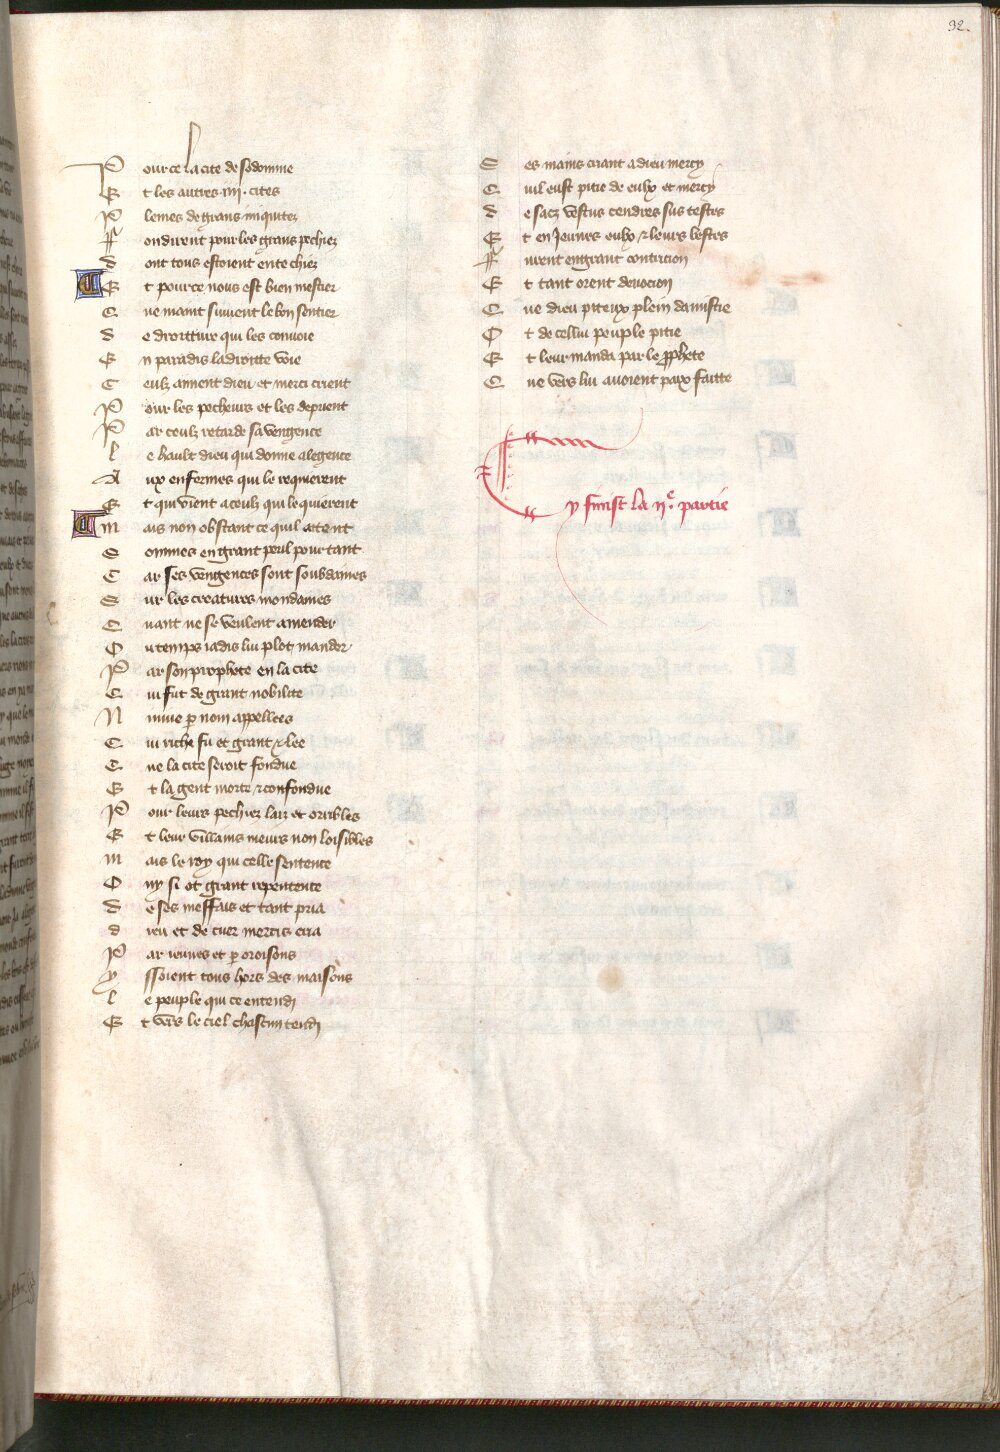 32.
Pour ce la cite de sodomme
Et les autres .iiii. cites
Plemes de grans iniquitez
Ffondirent pour les grans pechiez
dont tous estoient entechiez
Et pour ce nous est bien mestier
Que maint suivent le bon sentier
de droitture qui les convoie
En paradis la droitte voie
Ceulz aiment dieu et merci crient
Pour les pecheurs et les deprient
Par ceulz retarde sa vengence
le hault dieu qui donne alegence
Aux enfermes qui le requierent
Et qui vient a ceulz qui le quierent
mais non obstant ce quil attent
Sommes en grant peril pour tant
Car ses vengences sont soubdaines
Sur les creatures mondaines
Quant ne se veulent amender
Ou temps iadis luy plot mander
Par son prophete en la cite
Qui fut de grant nobilite
Ninive p nom appellees
Qui riche fu et grant & lee
Que la cite seroit fondue
Et la gent morte & confondue
Pour leurs pechiez lais et orribles
Et leur villains meurs non loisibles
mais le roy qui celle sentence
Ouy si ot grant repentence
de ses meffais et tant pria
dieu et de cuer mercis cria
Par ieunes et p oroisons
yssoient tous hors des maisons
le peuple qui ce entendi
Et vers le ciel chascun tendi
Ses mains criant a dieu mercy
Quil eust pitie de eulx et mercy
de sacz vestus cendres sus testes
Et en Jeunes eulx & leurs bestes
Ffurent en grant contricion
Et tant orent devocion
Que dieu piteux plein damistie
Ot de cellui peuple pitie
Et leur manda par le pphete
Que vers lui avoient paix faitte
Cy finist la ii.e partie